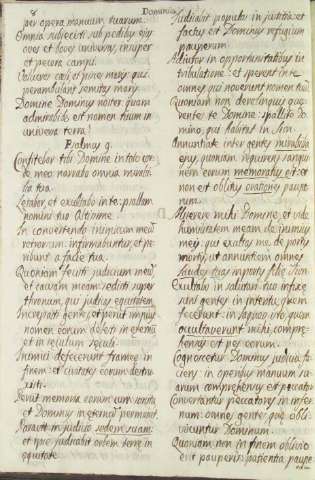 8
Dominica
per opera manuum tuarum.
Omnia subjecisti sub pedibus ejus
oves et boves universas, insuper
et pecora campi.
Volucres cæli et pisces maris qui
perambulant semitas maris
Domine Dominus noster quam
admirabile est nomen tuum in
universa terra!
Psalmus 9.
Confitebor tibi Domine in toto cor-
de meo narrabo omnia mirabi-
lia tua.
Letabor, et exultabo in te: psallam
nomini tuo Altissime.
In convertendo inimicum meum
retrorsum: infirmabuntur, et pe-
ribunt a facie tua.
Quoniam fecisti judicium meum
et causam meam: sedisti super
thronum, qui judicas equitatem
Increpasti gentes, et periit impius
nomen eorum delesti in eternum
et in seculum seculi.
Inimici defecerunt framee in
finem: et civitates eorum destru-
xisti.
Periit memoria eorum cum sonitu
et Dominus in eternum permanet.
Paravit in judicio sedem suam:
et ipse judicabit orbem terre in
equitate
Judicabit populos in justitia: et
factus est Dominus refugium
pauperum
Adiutor in opportunitatibus in
tribulatione: et sperent in te
omnes qui noverunt nomen tuum
Quoniam non dereliquisti que-
rentes te Domine: psallite Do-
mino, qui habitat in Sion
annuntiate inter gentes mirabilia
ejus, quoniam requirens sangui-
nem eorum memoratus est: et
non est oblitus orationes paupe-
rum.
Miserere mihi Domine, et vide
humilitatem meam de inimicis
meis, qui exaltas me de portis
mortis, ut annuntiem omnes
laudes tuas in portis filie Sion.
Exultabo in salutari tuo infixe
sunt gentes in interitu, quem
fecerunt. in laqueo isto, quem
occultaverunt mihi, compre-
hensus est pes eorum.
Cognoscetur Dominus judicia fa-
ciens in operibus manuum su-
arum comprehensus est peccator
Convertantur peccatores in infer-
num omnes gentes que obli-
viscuntur Dominum.
Quoniam non in finem oblivio
erit pauperis: patientia paupe-